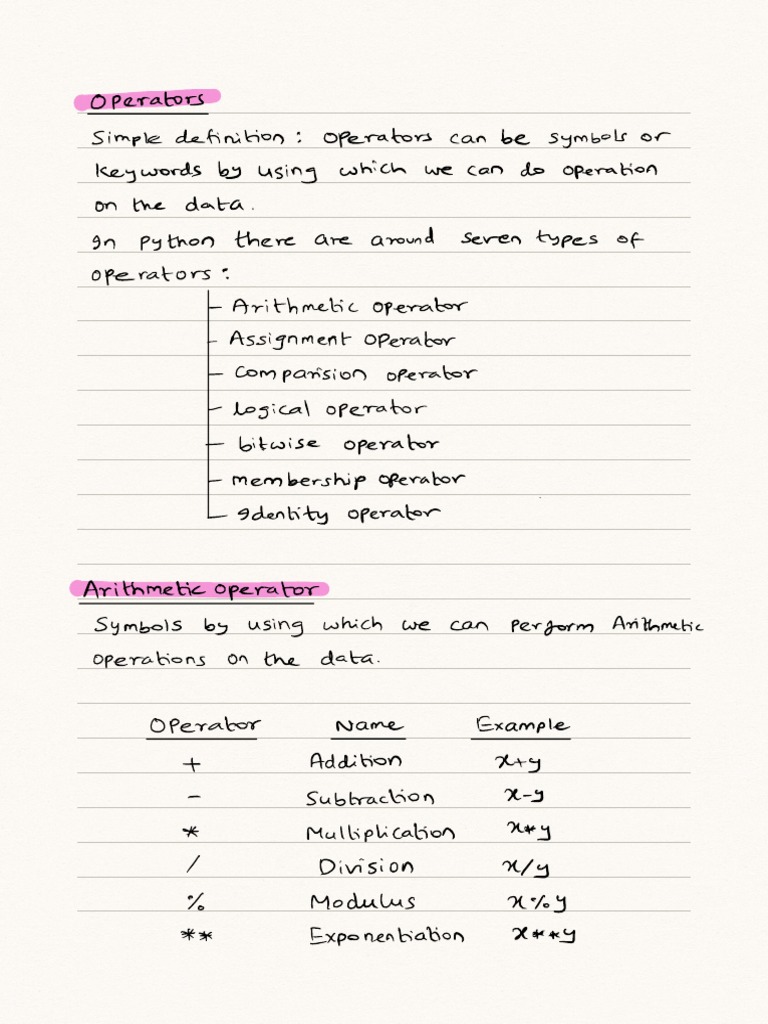 Operators
Simple definition: Operators can be symbols or
Keywords by using which we can do operation
on the data.
In python there are around seven types of
operators:
Arithmetic operator
Assignment operator
Comparision operator
logical operator
bitwise operator
membership operator
Identity operator
Arithmetic operator
Symbols by using which we can perform Arithmetic
operations on the data.
Operator Name Example
+ Addition x+y
- Subtraction x-y
* Multiplication x*y
/ Division x/y
% Modulus x%y
** Exponentiation x**y